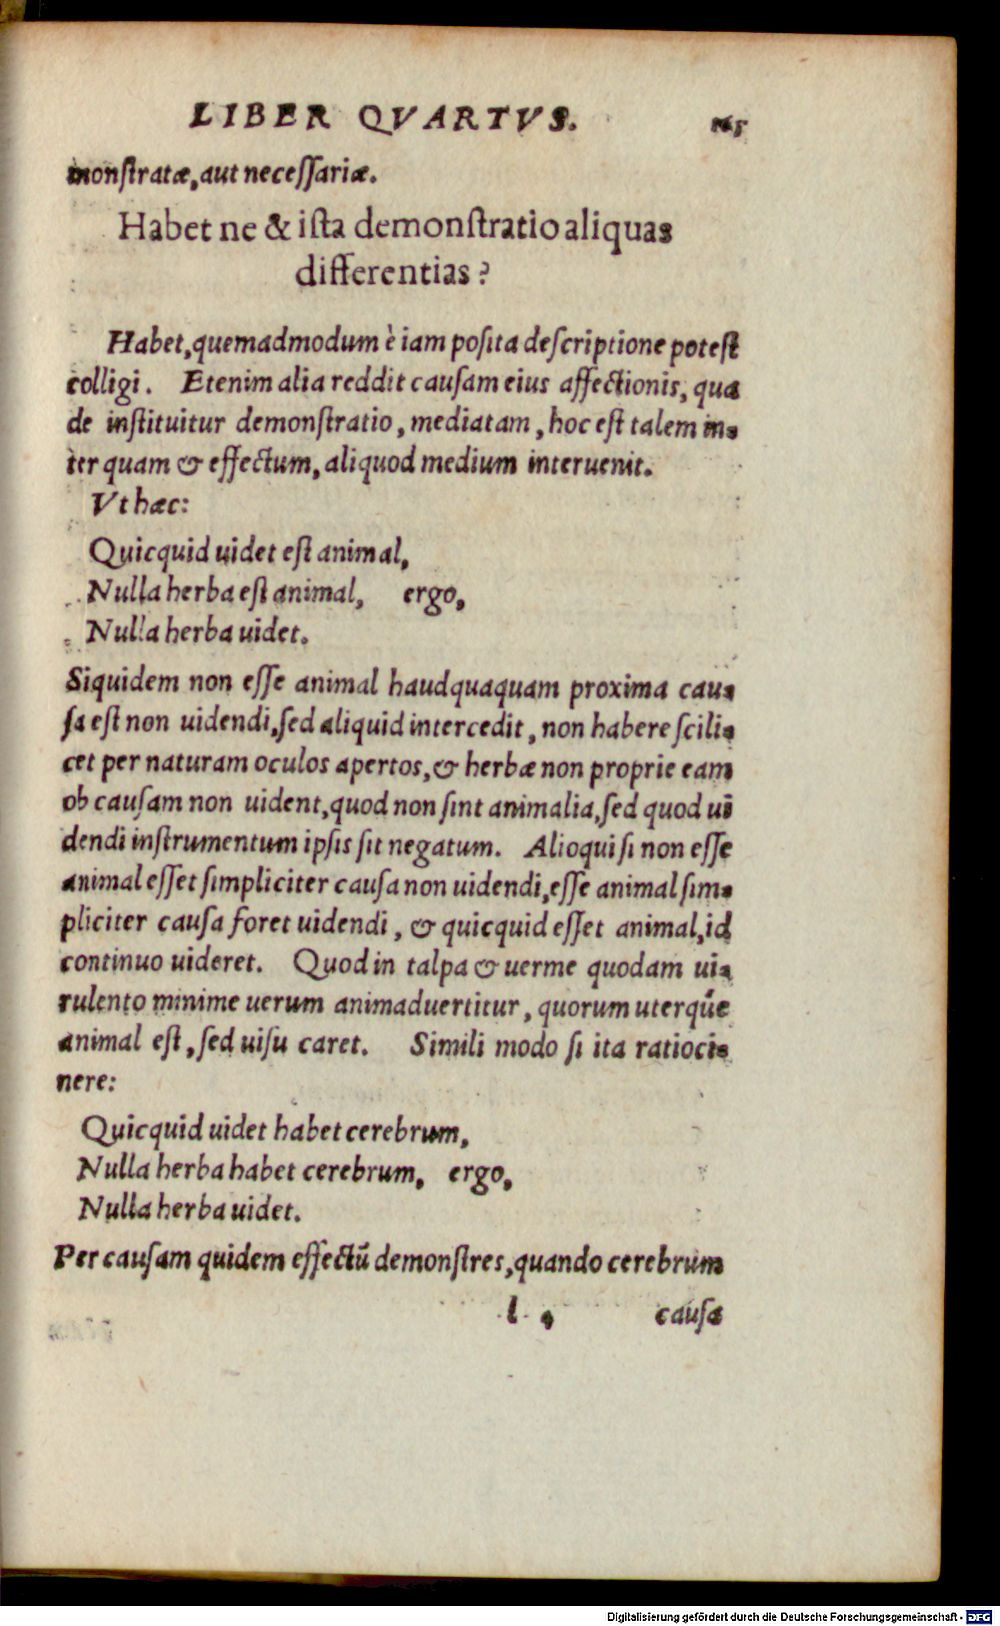 LIBER QVARTVS. 165
monſtratæ, aut neceſſariæ.
Habet ne & iſta demonſtratio aliquas
differentias?
Habet, quemadmodum è iam poſita deſcriptione poteſt
colligi. Etenim alia reddit cauſam eius affectionis, qua
de inſtituitur demonſtratio, mediatam, hoc eſt talem in-
ter quam & effectum, aliquod medium interuenit.
Vt hæc:
Quicquid uidet eſt animal,
Nulla herba eſt animal, ergo,
Nulla herba uidet.
Siquidem non eſſe animal haudquaquam proxima cau-
ſa eſt non uidendi, ſed aliquid intercedit, non habere ſcili-
cet per naturam oculos apertos, & herbæ non proprie eam
ob cauſam non uident, quod non ſint animalia, ſed quod ui
dendi inſtrumentum ipſis ſit negatum. Alioqui ſi non eſſe
animal eſſet ſimpliciter cauſa non uidendi, eſſe animal ſim-
pliciter cauſa foret uidendi, & quicquid eſſet animal, id
continuo uideret. Quod in talpa & uerme quodam ui-
rulento minime uerum animaduertitur, quorum uterq́ue
animal eſt, ſed uiſu caret. Simili modo ſi ita ratioci-
nere:
Quicquid uidet habet cerebrum,
Nulla herba habet cerebrum, ergo,
Nulla herba uidet.
Per cauſam quidem effectũ demonſtres, quando cerebrum
l causa
Digitalisierung gefördert durch die Deutsche Forschungsgemeinschaft - DFG